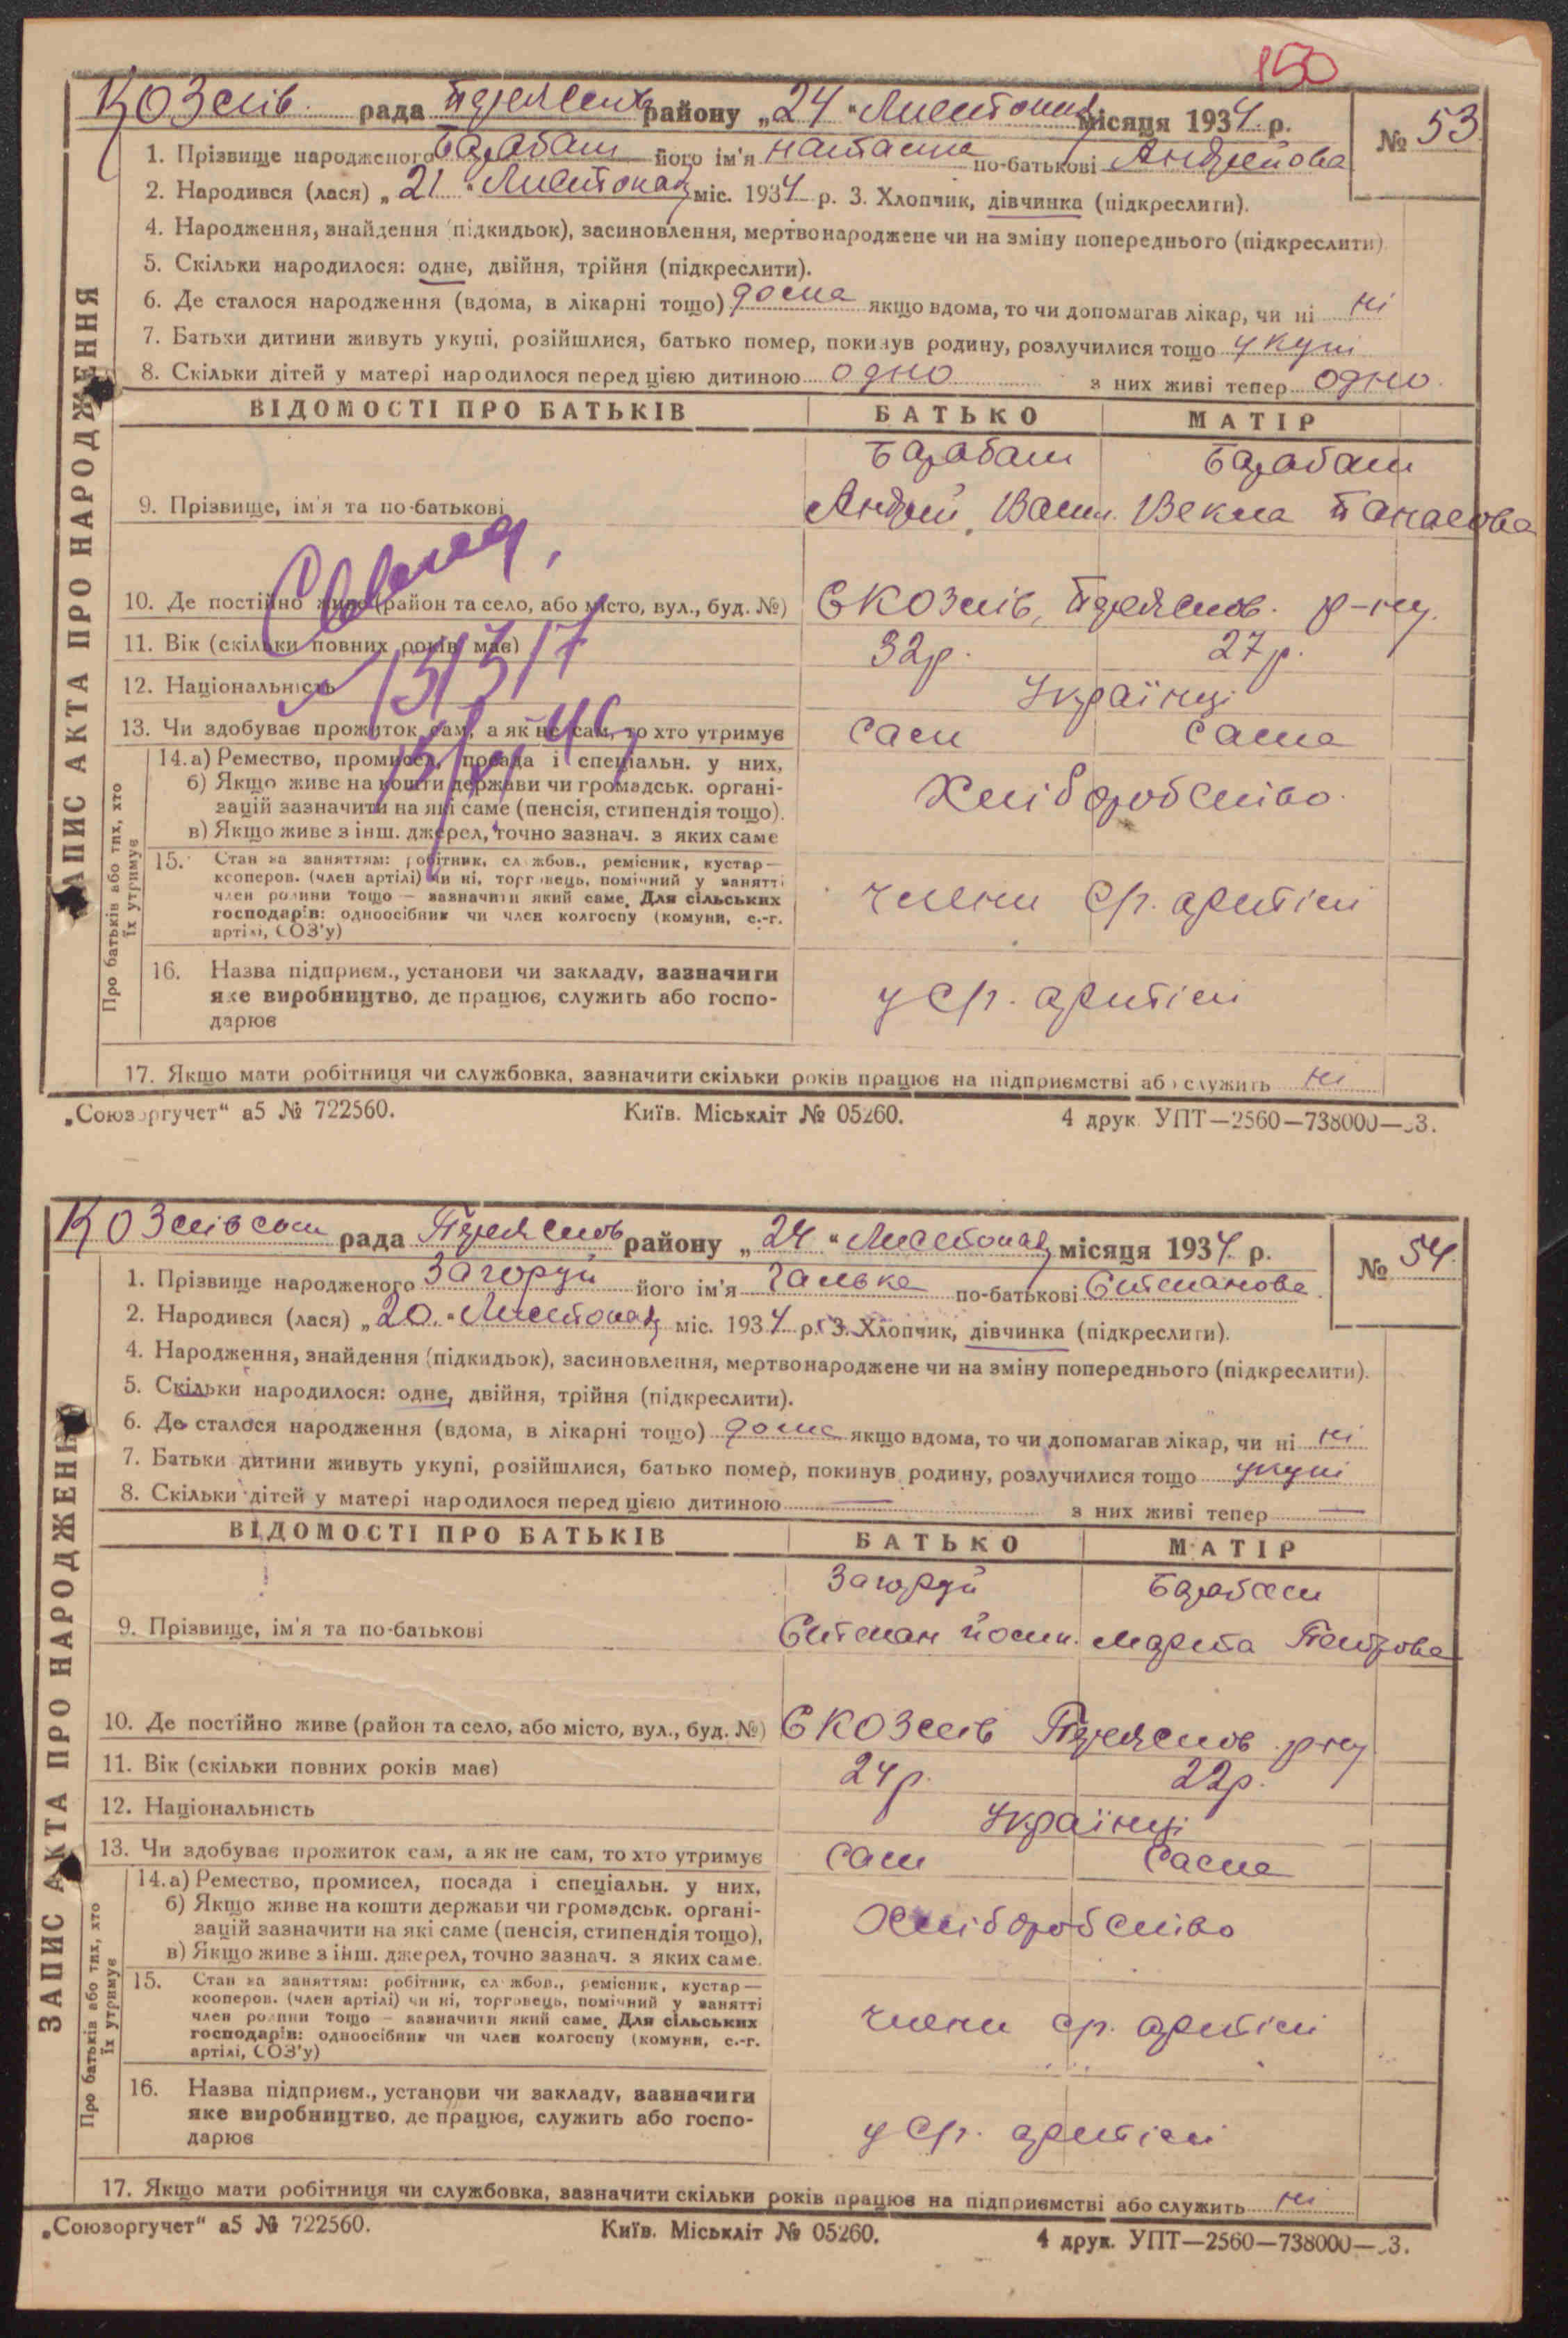 150
Козлів. рада Переяслів району „24“ Листопад місяця 1934 р.
№ 53
1. Прізвище народженого Барабаш його ім'я Наталка по-батькові Андрейова
2. Народився (лася) „21“ Листопад міс. 1934 р. 3. Хлопчик, дівчинка (підкреслити).
4. Народження, знайдення (підкидьок), засиновлення, мертвонароджене чи на зміну попереднього (підкреслити)
5. Скільки народилося: одне, двійня, трійня (підкреслити).
6. Де сталося народження (вдома, в лікарні тощо) дома якщо вдома, то чи допомагав лікар, чи ні ні
7. Батьки дитини живуть укупі, розійшлися, батько помер, покинув родину, розлучилися тощо укупі
8. Скільки дітей у матері народилося перед цією дитиною одно з них живі тепер одно.
ВІДОМОСТІ ПРО БАТЬКІВ БАТЬКО МАТІР
Барабаш Барабаш
9. Прізвище, ім'я та по-батькові Андрій Васил. Векла Панасова
10. Де постійно живе (район та село, або місто, вул., буд. №) С Козлів, Переяслов. р-ну.
11. Вік (скільки повних років має) 32р. 27р.
12. Національність Українці
13. Чи здобуває прожиток сам, а як не сам, то хто утримує сам сама
14. а) Ремество, промисел, посада і спеціальн. у них,
б) Якщо живе на кошти держави чи громадськ. органі-
зацій зазначити на які саме (пенсія, стипендія тощо).
в) Якщо живе з інш. джерел, точно зазнач. з яких саме
Хліборобсміво.
15. Стан за заняттям: робітник, службов., ремісник, кустар—
кооперов. (член артілі) чи ні, торговець, помічний у занятті
член родини тощо — зазначити який саме. Для сільських
господарів: одноосібник чи член колгоспу (комуни, с.-г.
артілі, СОЗ'у)
члени ср. артілі
16. Назва підприєм., установи чи закладу, зазначити
яке виробництво, де працює, служить або госпо-
дарює
у ср. артілі
17. Якщо мати робітниця чи службовка, зазначити скільки років працює на підприємстві або служить ні
Про батьків або тих, хто їх утримує
ЗАПИС АКТА ПРО НАРОДЖЕННЯ
„Союзоргучет“ а5 № 722560. Київ. Міськліт № 05260. 4 друк. УПТ—2560—738000—33.
Козлівсом рада Переяслов району „24“ Листопад місяця 1934 р.
№ 54.
1. Прізвище народженого Загоруй його ім'я Галька по-батьковіСитманова.
2. Народився (лася) „20.“ Листопад міс. 1934 р. 3. Хлопчик, дівчинка (підкреслити).
4. Народження, знайдення (підкидьок), засиновлення, мертвонароджене чи на зміну попереднього (підкреслити).
5. Скільки народилося: одне, двійня, трійня (підкреслити).
6. Де сталося народження (вдома, в лікарні тощо) дома якщо вдома, то чи допомагав лікар, чи ні ні
7. Батьки дитини живуть укупі, розійшлися, батько помер, покинув родину, розлучилися тощо укупі
8. Скільки дітей у матері народилося перед цією дитиною — з них живі тепер —
ВІДОМОСТІ ПРО БАТЬКІВ БАТЬКО МАТІР
Загоруй Барабаш
9. Прізвище, ім'я та по-батькові Йосип. Марта Петрова
10. Де постійно живе (район та село, або місто, вул., буд. №) С Козлів Переяслов рну
11. Вік (скільки повних років має) 24р. 22р.
12. Національність Українці
13. Чи здобуває прожиток сам, а як не сам, то хто утримує сам сама
14. а) Ремество, промисел, посада і спеціальн. у них,
б) Якщо живе на кошти держави чи громадськ. органі-
зацій зазначити на які саме (пенсія, стипендія тощо),
в) Якщо живе з інш. джерел, точно зазнач. з яких саме.
Хліборобсміво
15. Стан за заняттям: робітник, службов., ремісник, кустар—
кооперов. (член артілі) чи ні, торговець, помічний у занятті
член родини тощо — зазначити який саме. Для сільських
господарів: одноосібник чи член колгоспу (комуни, с.-г.
артілі, СОЗ'у)
члени ср. артілі
16. Назва підприєм., установи чи закладу, зазначити
яке виробництво, де працює, служить або госпо-
дарює
у ср. артілі
17. Якщо мати робітниця чи службовка, зазначити скільки років працює на підприємстві або служить ні
Про батьків або тих, хто їх утримує
ЗАПИС АКТА ПРО НАРОДЖЕННЯ
„Союзоргучет“ а5 № 722560. Київ. Міськліт № 05260. 4 друк. УПТ—2560—738000—33.